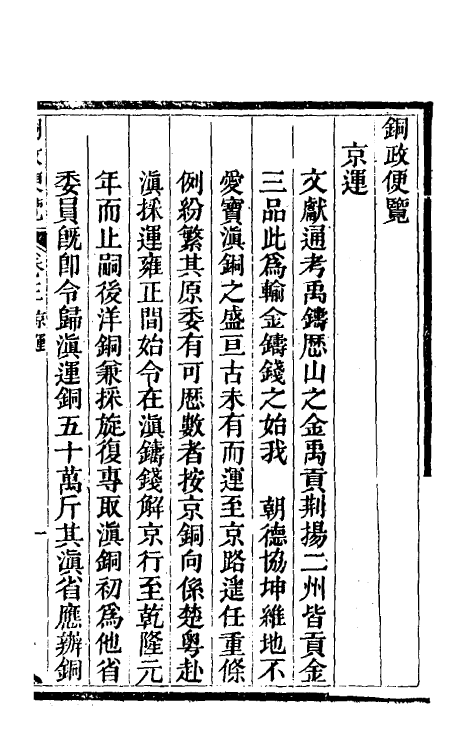 銅政便覽
京運
文獻通考禹鑄歷山之金禹貢荆揚二州皆貢金
三品此為輸金鑄錢之始我　朝德協坤維地不
愛寶滇銅之盛亘古未有而運至京路遠任重條
例紛繁其原委有可歷數者按京銅向係楚粤赴
滇採運雍正間始令在滇鑄錢解京行至乾隆元
年而止嗣後洋銅兼採旋復專取滇銅初為他省
委員旣卽令歸滇運銅五十萬斤其滇省應辦銅
銅政便覽　卷三京運　一